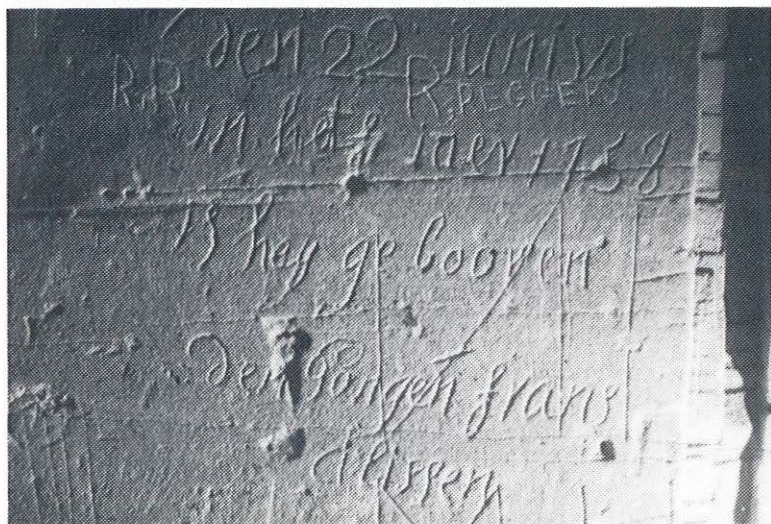 den 22 junius
R.R R. PEGGERS
in het jaer 1758
is hey ge booren
den Jongen frans
Clissen